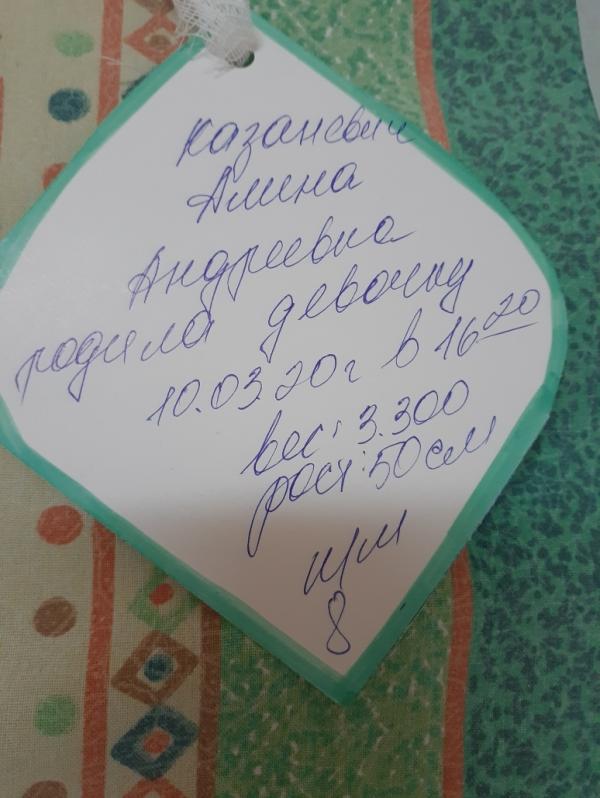 Казаневич
Амина
Андреевна
родила девочку
10.03.20г в 16 20
вес: 3.300
рост: 50 см
8